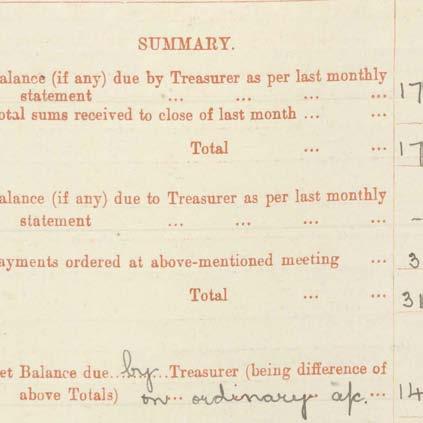 SUMMARY.
alance (if any) due by Treasurer as per last monthly
statement ... ... ... ... 17
otal sums received to close of last month ... ...
Total ... ... 17
alance (if any) due to Treasurer as per last monthly
statement ... ... ... ... -
ayments ordered at above-mentioned meeting ... 3
Total ... ... 31
et Balance due...by...Treasurer (being difference of
above Totals) on ordinary a/c. ... 14